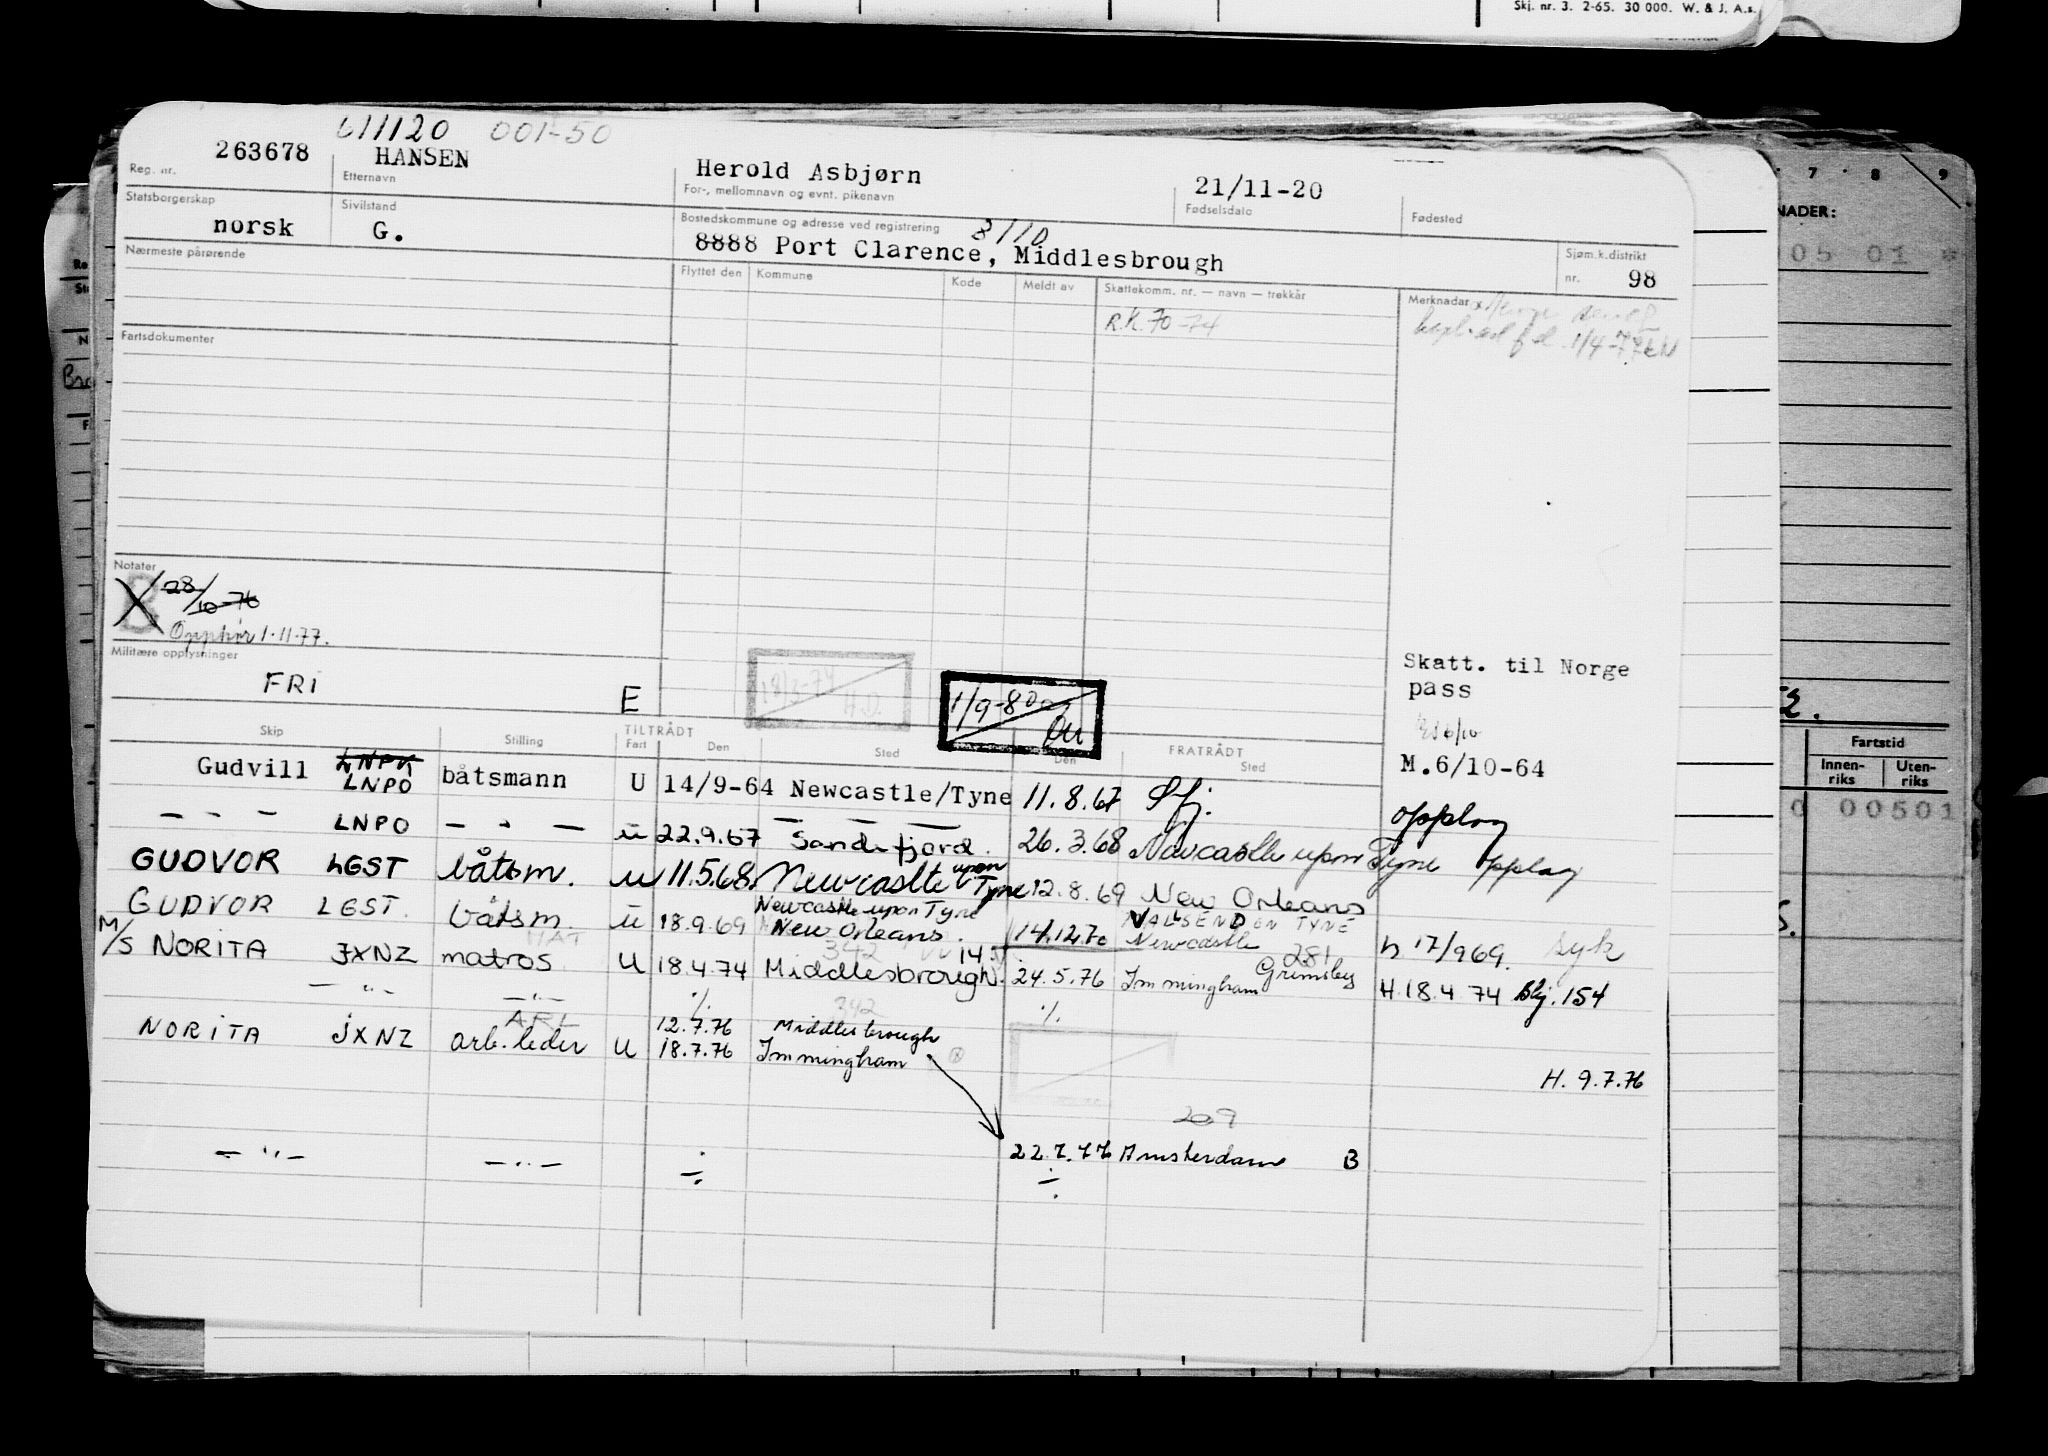 Skj. nr. 3. 2-65. 30 000. W. & J. A.s.
611120 001-50
Reg. nr. 263678 HANSEN Herold Asbjørn 21/11-20
Etternavn For-, mellomnavn og evnt. pikenavn Fødselsdato Fødested
Statsborgerskap Sivilstand Bostedskommune og adresse ved registrering 3110
norsk G. 8888 Port Clarence, Middlesbrough Sjøm.k.distrikt nr. 98
Nærmeste pårørende Flyttet den Kommune Kode Meldt av Skattekomm. nr. — navn — trekkår Merknadar
R.K. 70-74
1/4-77
Fartsdokumenter
Notater
B 28/10-76
Opphør 1.11.77.
Militære opplysninger
FRI E
18/3-74 H.D.
1/9-80
Skatt. til Norge
pass
Skip Stilling TILTRÅDT Fart Den Sted FRATRÅDT Den Sted
M.6/10-64
Gudvill LNPK LNPO båtsmann U 14/9-64 Newcastle/Tyne 11.8.67 Sfj. opplag
— " — LNPO — " — u 22.9.67 Sandefjord. 26.3.68 Newcastle upon Tyne opplag
GUDVOR LGST båtsm. u 11.5.68. Newcastle upon Tyne 12.8.69 New Orleans
GUDVOR LGST. båtsm. u 18.9.69 Newcastle upon Tyne New Orleans. 14.12.70 WALLSEND ON TYNE Newcastle h 17/969. syk
M/S NORITA JXNZ matros MAT U 18.4.74 342 Middlesbrough. 24.5.76 Immingham Grimsby 281 H.18.4.74 Bkj. 154
— " — — " — ./. ./.
NORITA JXNZ ARL arb.leder U 12.7.76 18.7.76 342 Middlesbrough Immingham
H. 9.7.76
209
— " — — " — ÷ 22.7.77 Amsterdam B
÷
7 8 9
NADER:
005 01 *
Fartstid
Innen-riks Uten-riks
0 00501